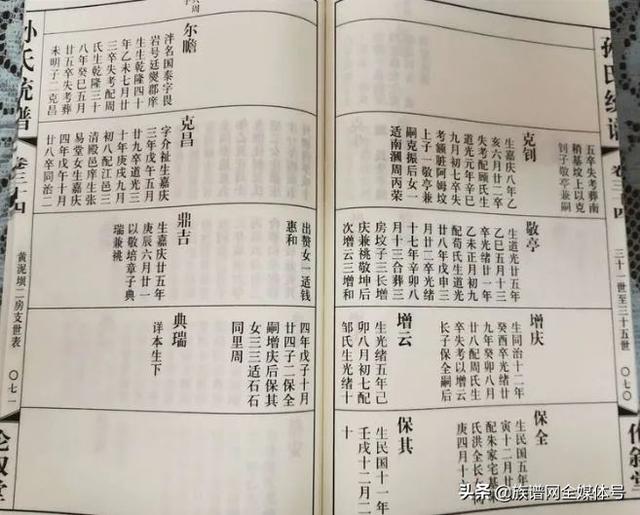 孙氏统谱
卷三十四
三十一世至三十五世
〇七〇
五卒失考葬南
稍基坟上以克
钊子敬亭兼嗣
克钊
生嘉庆八年乙
亥六月廿二卒
失考配顾氏生
道光元年辛巳
九月初七卒失
考额脏阿姆坟
上子一敬亭兼
嗣克振后女一
适南周丙荣
敬亭
生道光廿五年
乙巳五月十三
卒光绪廿一年
乙未正月初九
配荀氏生道光
廿八年戊申三
月廿二卒光绪
十七年辛卯八
月十三合葬三
房坟子三长增
庆兼祧敬坤后
次增云三增和
增庆
生同治十二年
癸酉卒光绪廿
九年癸卯八月
廿八配周氏生
卒失考以增云
长子保全嗣后
增云
生光绪五年己
卯八月初七配
邹氏生光绪十
保全
生民国五年
寅十二月廿
配朱家宅基朱
氏洪全长
庚四月十
保其
生民国十一年
壬戌十二月二
十
出赘女一适钱
惠和
四年戊子十月
廿四子二保全
嗣增庆后保其
女三三适石石
同里周
尔瞻
泮名国泰字畏
岩号廷燮郡庠
生生乾隆四十
年乙未七月廿
三卒失考配周
氏生乾隆三十
八年癸巳五月
廿五卒失考葬
未明子二克昌
克昌
字介祉生嘉庆
三年戊午五月
廿九卒道光三
十年庚戌九月
初八配江邑三
清殿邑庠生张
易堂女生嘉庆
四年戊午十月
廿八卒同治二
鼎吉
生嘉庆廿五年
庚辰六月廿一
以敬培章子典
瑞兼祧
典瑞
详本生下
孙氏统谱
卷三十四
黄泥坝二房支世表
〇七一
伦叙堂
头条 @族谱网全媒体号